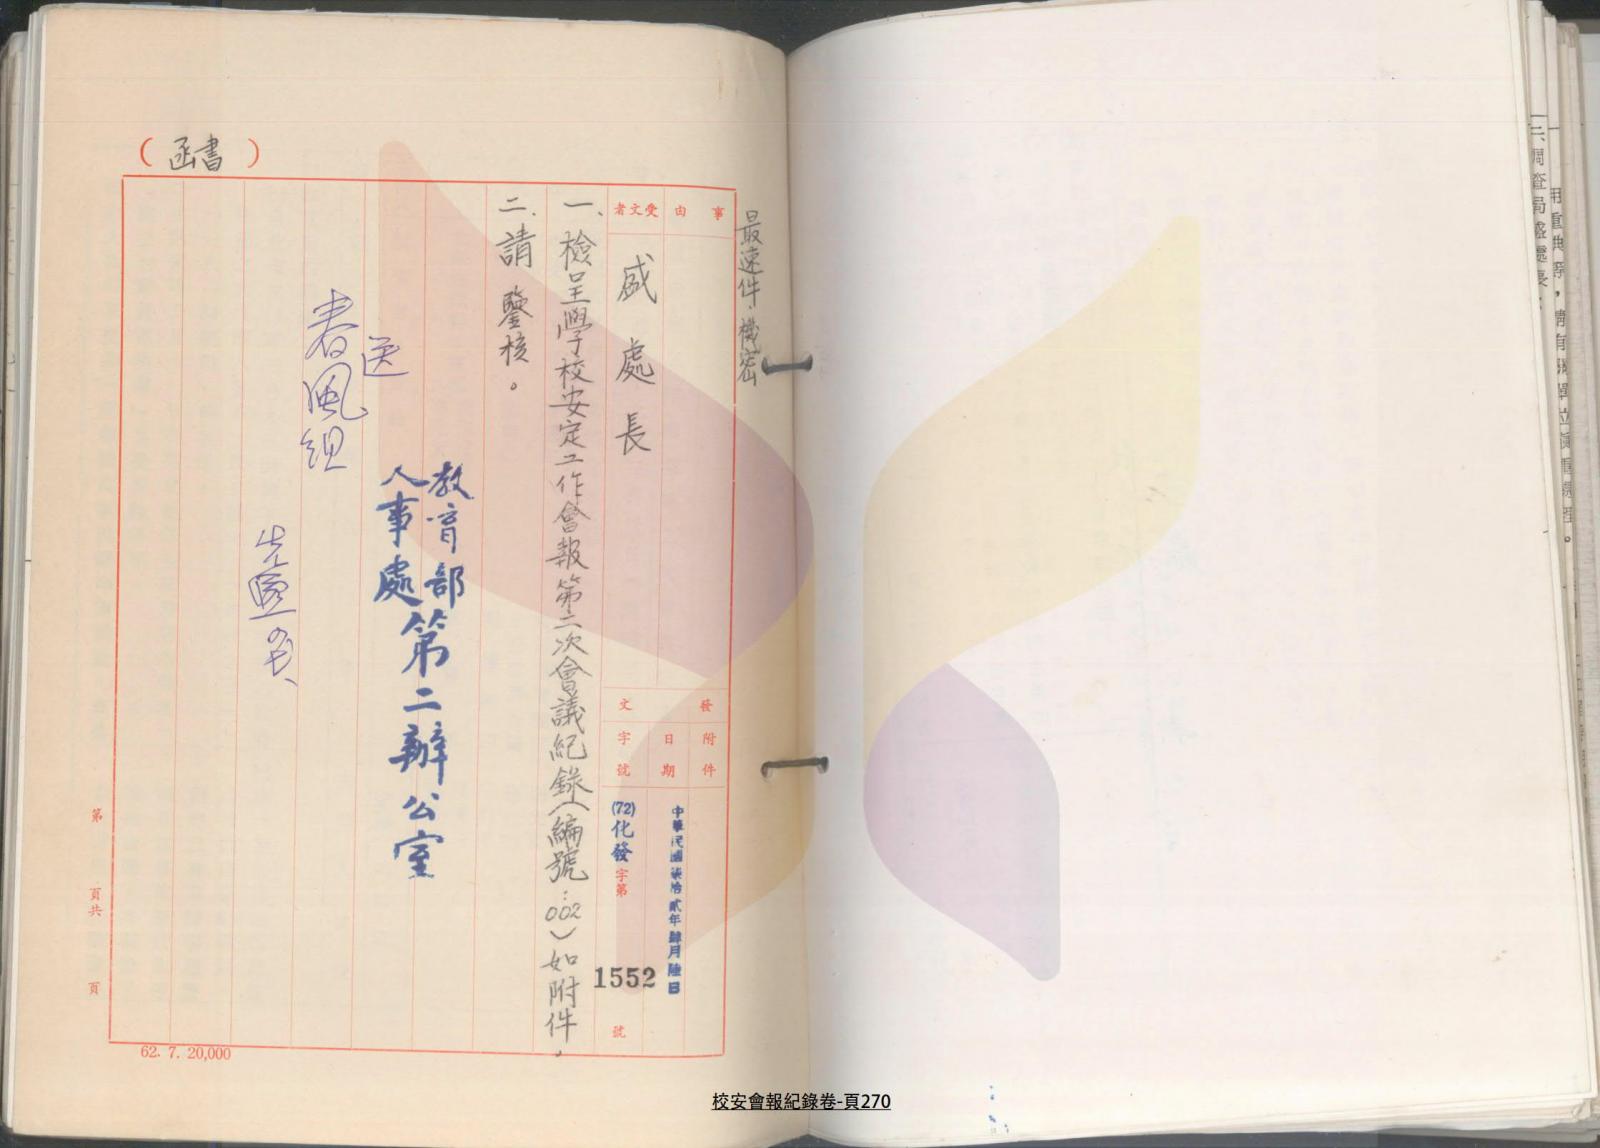 （函書）
最速件，機密
事由
受文者
盛處長
發文
附件
日期
字號
中華民國柒拾貳年肆月陸日
(72)化發字第1552號
一、檢呈學校安定工作會報第二次會議紀錄（編號：002）如附件。
二、請鑒核。
教育部
人事處
第二辦公室
送
春風組
第頁共頁
62. 7. 20,000
用重典等，請有關單位
調查局盛處長
校安會報紀錄卷-頁270